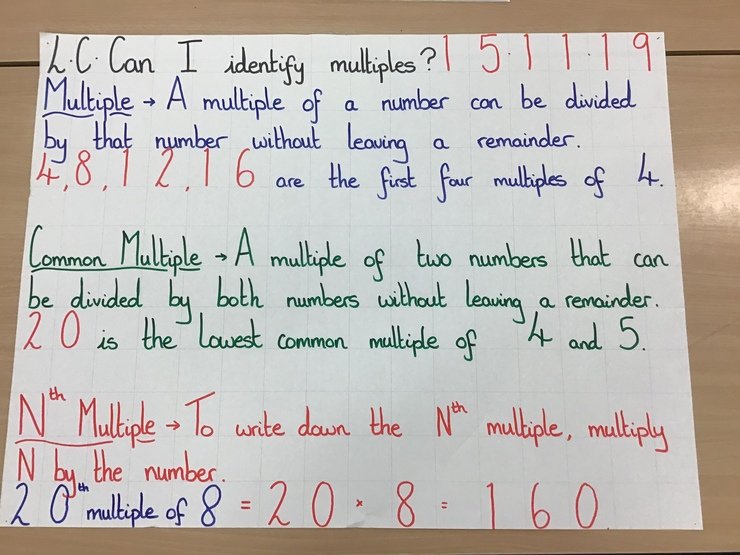 L.C. Can I identify multiples? 15.11.19
Multiple → A multiple of a number can be divided
by that number without leaving a remainder.
4,8,12,16 are the first four multiples of 4.
Common Multiple → A multiple of two numbers that can
be divided by both numbers without leaving a remainder.
20 is the lowest common multiple of 4 and 5.
Nth Multiple → To write down the Nth multiple, multiply
N by the number.
20th multiple of 8 = 20 × 8 = 160